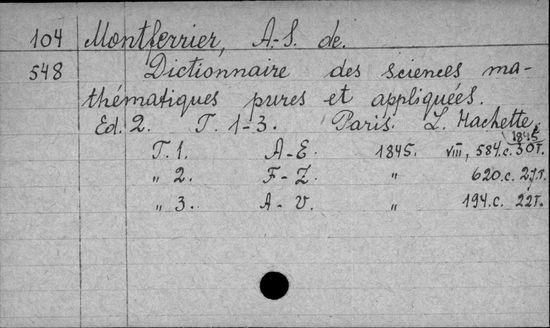 104 Montferrier, A.-S. de.
548 Dictionnaire des sciences ma-
thématiques pures et appliquées.
Ed. 2. T. 1-3. Paris. L. Hachette,
1845.
T. 1. A-E. 1845. VIII, 584.c. 30т.
„ 2. F-Z. „ 620.c. 27т.
„ 3. A-V. „ 194.c. 22т.